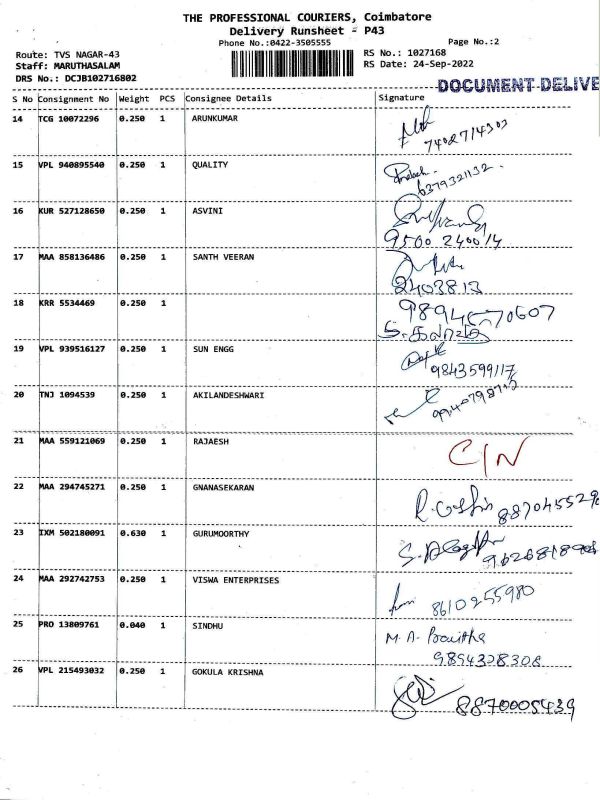 THE PROFESSIONAL COURIERS, Coimbatore
Delivery Runsheet - P43
Phone No.:0422-3505555 Page No.:2
Route: TVS NAGAR-43 RS No.: 1027168
Staff: MARUTHASALAM RS Date: 24-Sep-2022
DRS No.: DCJB102716802
DOCUMENT DELIVE
S No Consignment No Weight PCS Consignee Details Signature
14 TCG 10072296 0.250 1 ARUNKUMAR
7402714303
15 VPL 940895540 0.250 1 QUALITY
6379321132.
16 KUR 527128650 0.250 1 ASVINI
9500 240014
17 MAA 858136486 0.250 1 SANTH VEERAN
2403813
18 KRR 5534469 0.250 1
19 VPL 939516127 0.250 1 SUN ENGG
9843599117
20 TNJ 1094539 0.250 1 AKILANDESHWARI
21 MAA 559121069 0.250 1 RAJAESH
C/N
22 MAA 294745271 0.250 1 GNANASEKARAN
23 IXM 502180091 0.630 1 GURUMOORTHY
24 MAA 292742753 0.250 1 VISWA ENTERPRISES
8610255980
25 PRO 13809761 0.040 1 SINDHU
M. A.
9894328308
26 VPL 215493032 0.250 1 GOKULA KRISHNA
8870005439